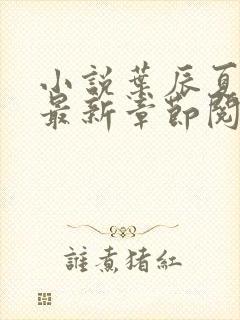 小説葉辰夏
最新章節閱
誰煮猪紅